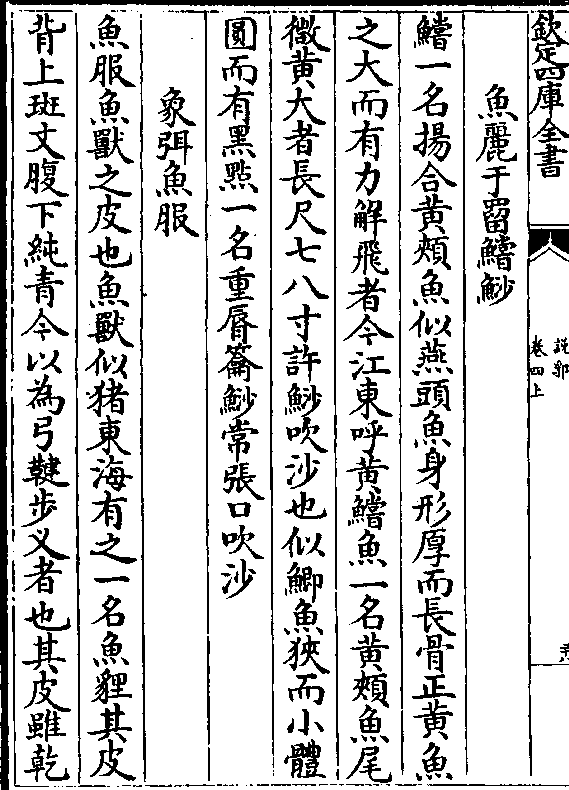 欽定四庫全書
說郛
卷四上
魚麗于罶鱨鯊
鱨一名揚合黄頰魚似燕頭魚身形厚而長骨正黄魚
之大而有力解飛者今江東呼黄鱨魚一名黄頰魚尾
微黄大者長尺七八寸許魦吹沙也似鯽魚狹而小體
圓而有黑點一名重唇籥魦常張口吹沙
象弭魚服
魚服魚獸之皮也魚獸似猪東海有之一名魚貍其皮
背上斑文腹下純青今以為弓鞬步义者也其皮雖乾